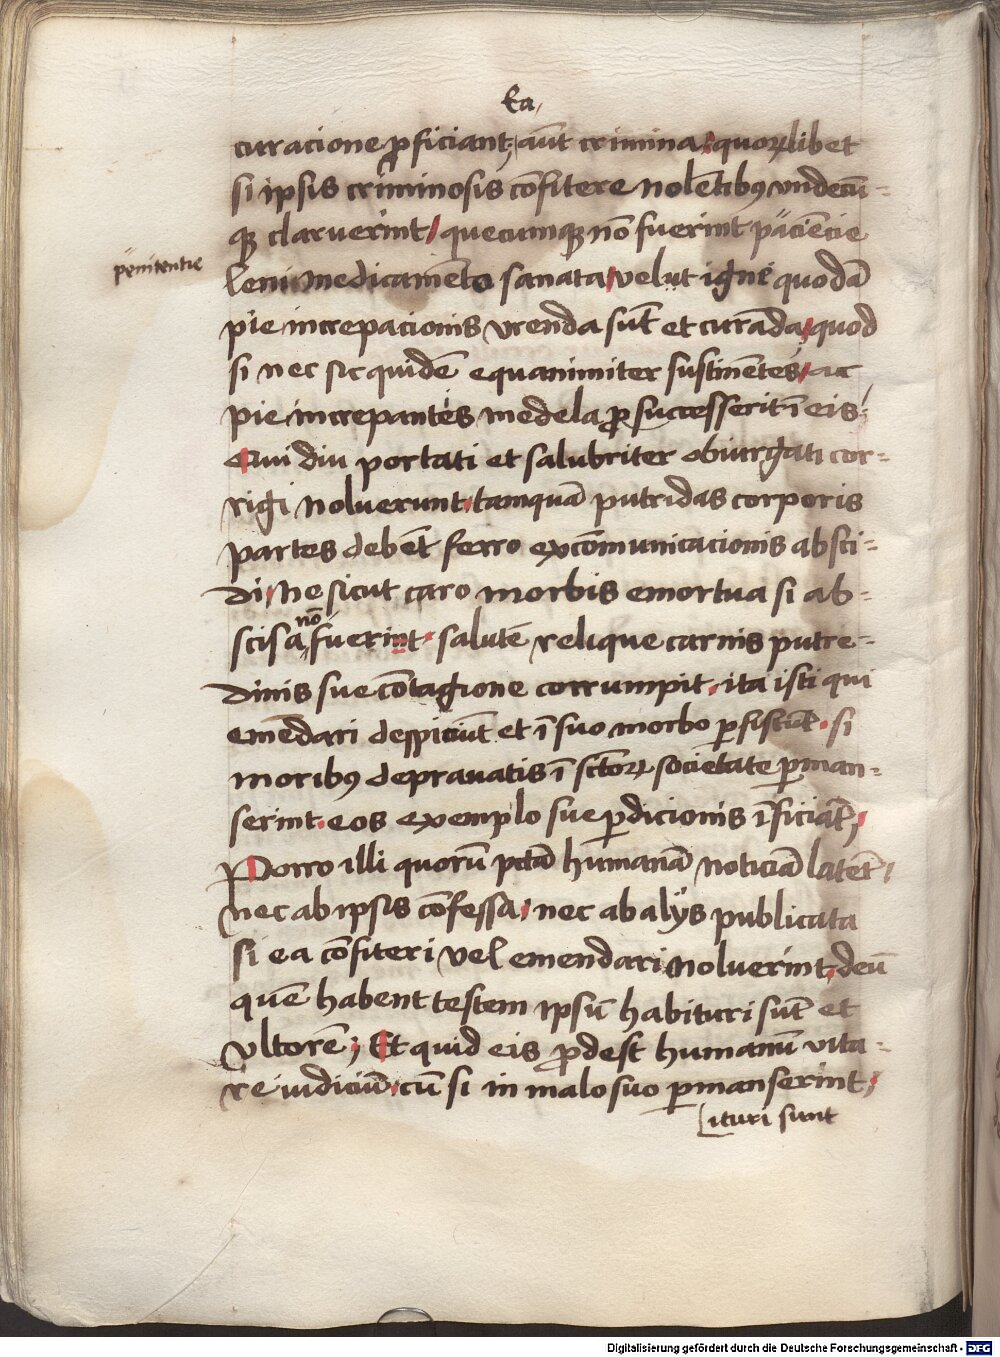 Ea
curacione proficiant; aut crimina quorumlibet
si ipsis criminosis cōfitere nolētibus vndecū-
que claruerint / quecumque nō fuerint paciēcie
penitentie
leni medicamēto sanata / velut igne quodā
pie increpacionis vrenda sūt et curāda / quod
si nec sic quidē equanimiter sustinētes / ac
pie increpantes medela prosuccesserit ī eis;
Qui diu portati et salubriter obiurgati cor-
rigi noluerunt tamquā putridas corporis
partes debēt ferro excōmunicacionis absci-
di / ne sicut caro morbis emortua si ab-
scisa nō fuerint salutē relique carnis putre-
dinis sue cōtagione corrumpit. ita isti qui
emēdari despiciūt et ī suo morbo persistūt. si
moribus deprauatis ī sctorum societate perman-
serint. eos exemplo sue perdicionis īficiāt;
Porro illi quorū pctā humanā noticiā latēt /
nec ab ipsis cōfessa, nec ab alijs publicata
si ea cōfiteri vel emendari noluerint, deū
quē habent testem ipsū habituri sūt et
vltorē; Et quid eis prodest humanū vita-
re iudiciū, cū si in malo suo permanserint;
ituri sunt
Digitalisierung gefördert durch die Deutsche Forschungsgemeinschaft - DFG